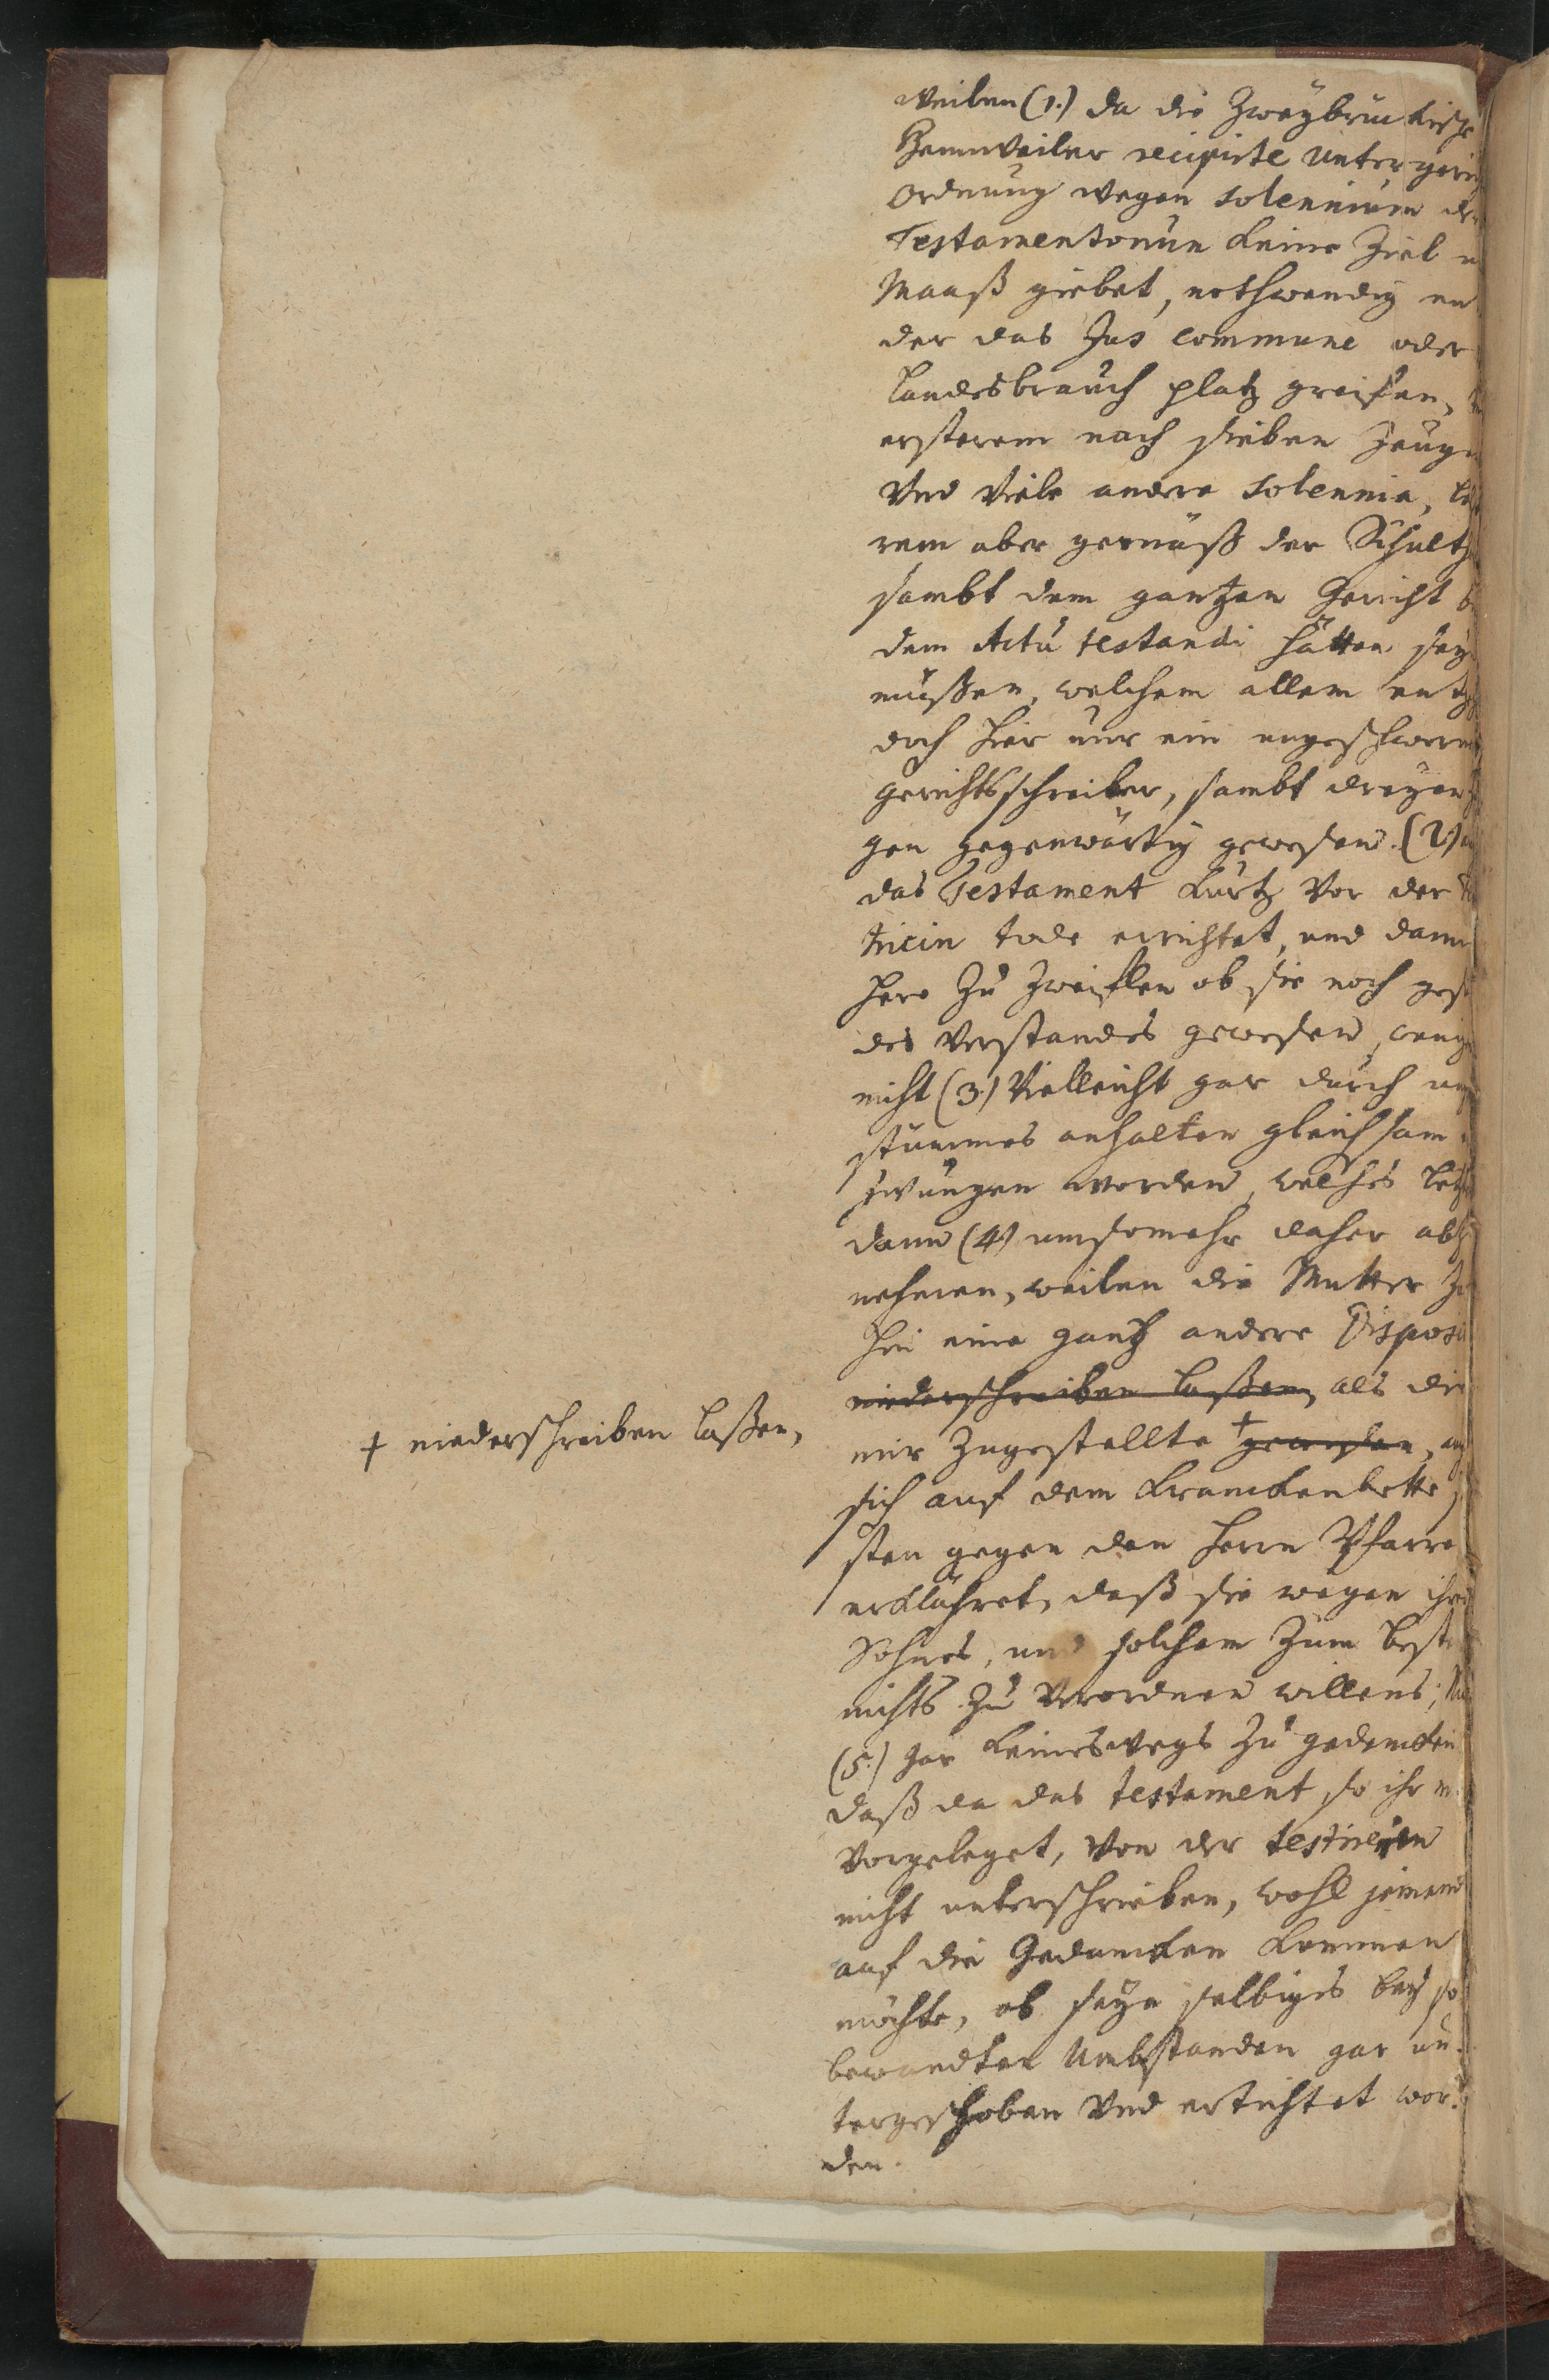 weilen (1.) da die Zweybrückische
Hennweiler recipirte Untergeri
Ordnung wegen solennium der
Testamentorum keine Ziel u
Maaß giebet, nothwendig en
der das Jus commune oder
Landesbrauch platz greiffen,
ersterem nach sieben Zeuge
Und Viele andere solennia, letz
rem aber gemäß der Schulth
sambt dem gantzen Gericht b
dem Actu testandi hätten sey
müßen, welchem allem entg
doch hier nur ein ungeschworn
gerichtsschreiber, sambt dreyen
gen gegenwärtig gewesen. (2.)
das Testament kurtz vor der
tricin tode errichtet, und dann
hero Zu Zweiflen ob sie noch ges
des Verstandes gewesen, wenig
nicht (3.) Vielleicht gar durch un
stümmes anhalten gleichsam
zwungen worden, welches letz
dann (4.) umsomehr daher abz
nehmen, weilen die Mutter
hin eine gantz andere Disposi
niederschreiben laßen, als die
mir Zugestellte + gewesen,
+ niederschreiben laßen,
sich auf dem Kranckenbette
sten gegen den Herrn Pfarre
erklähret, daß sie wegen ihre
Sohnes, und solchem Zum beste
nichts Zu Verordnen willens;
(5.) Gar keineswegs Zu gedencken
daß da das testament so ihr
Vorgeleget, Von der testricin
nicht unterschrieben, wohl jemand
auf die Gedancken kommen
möchte, ob seye selbiges bey so
bewandten Umbständen gar un-
tergeschoben Und ertichtet wor-
den.